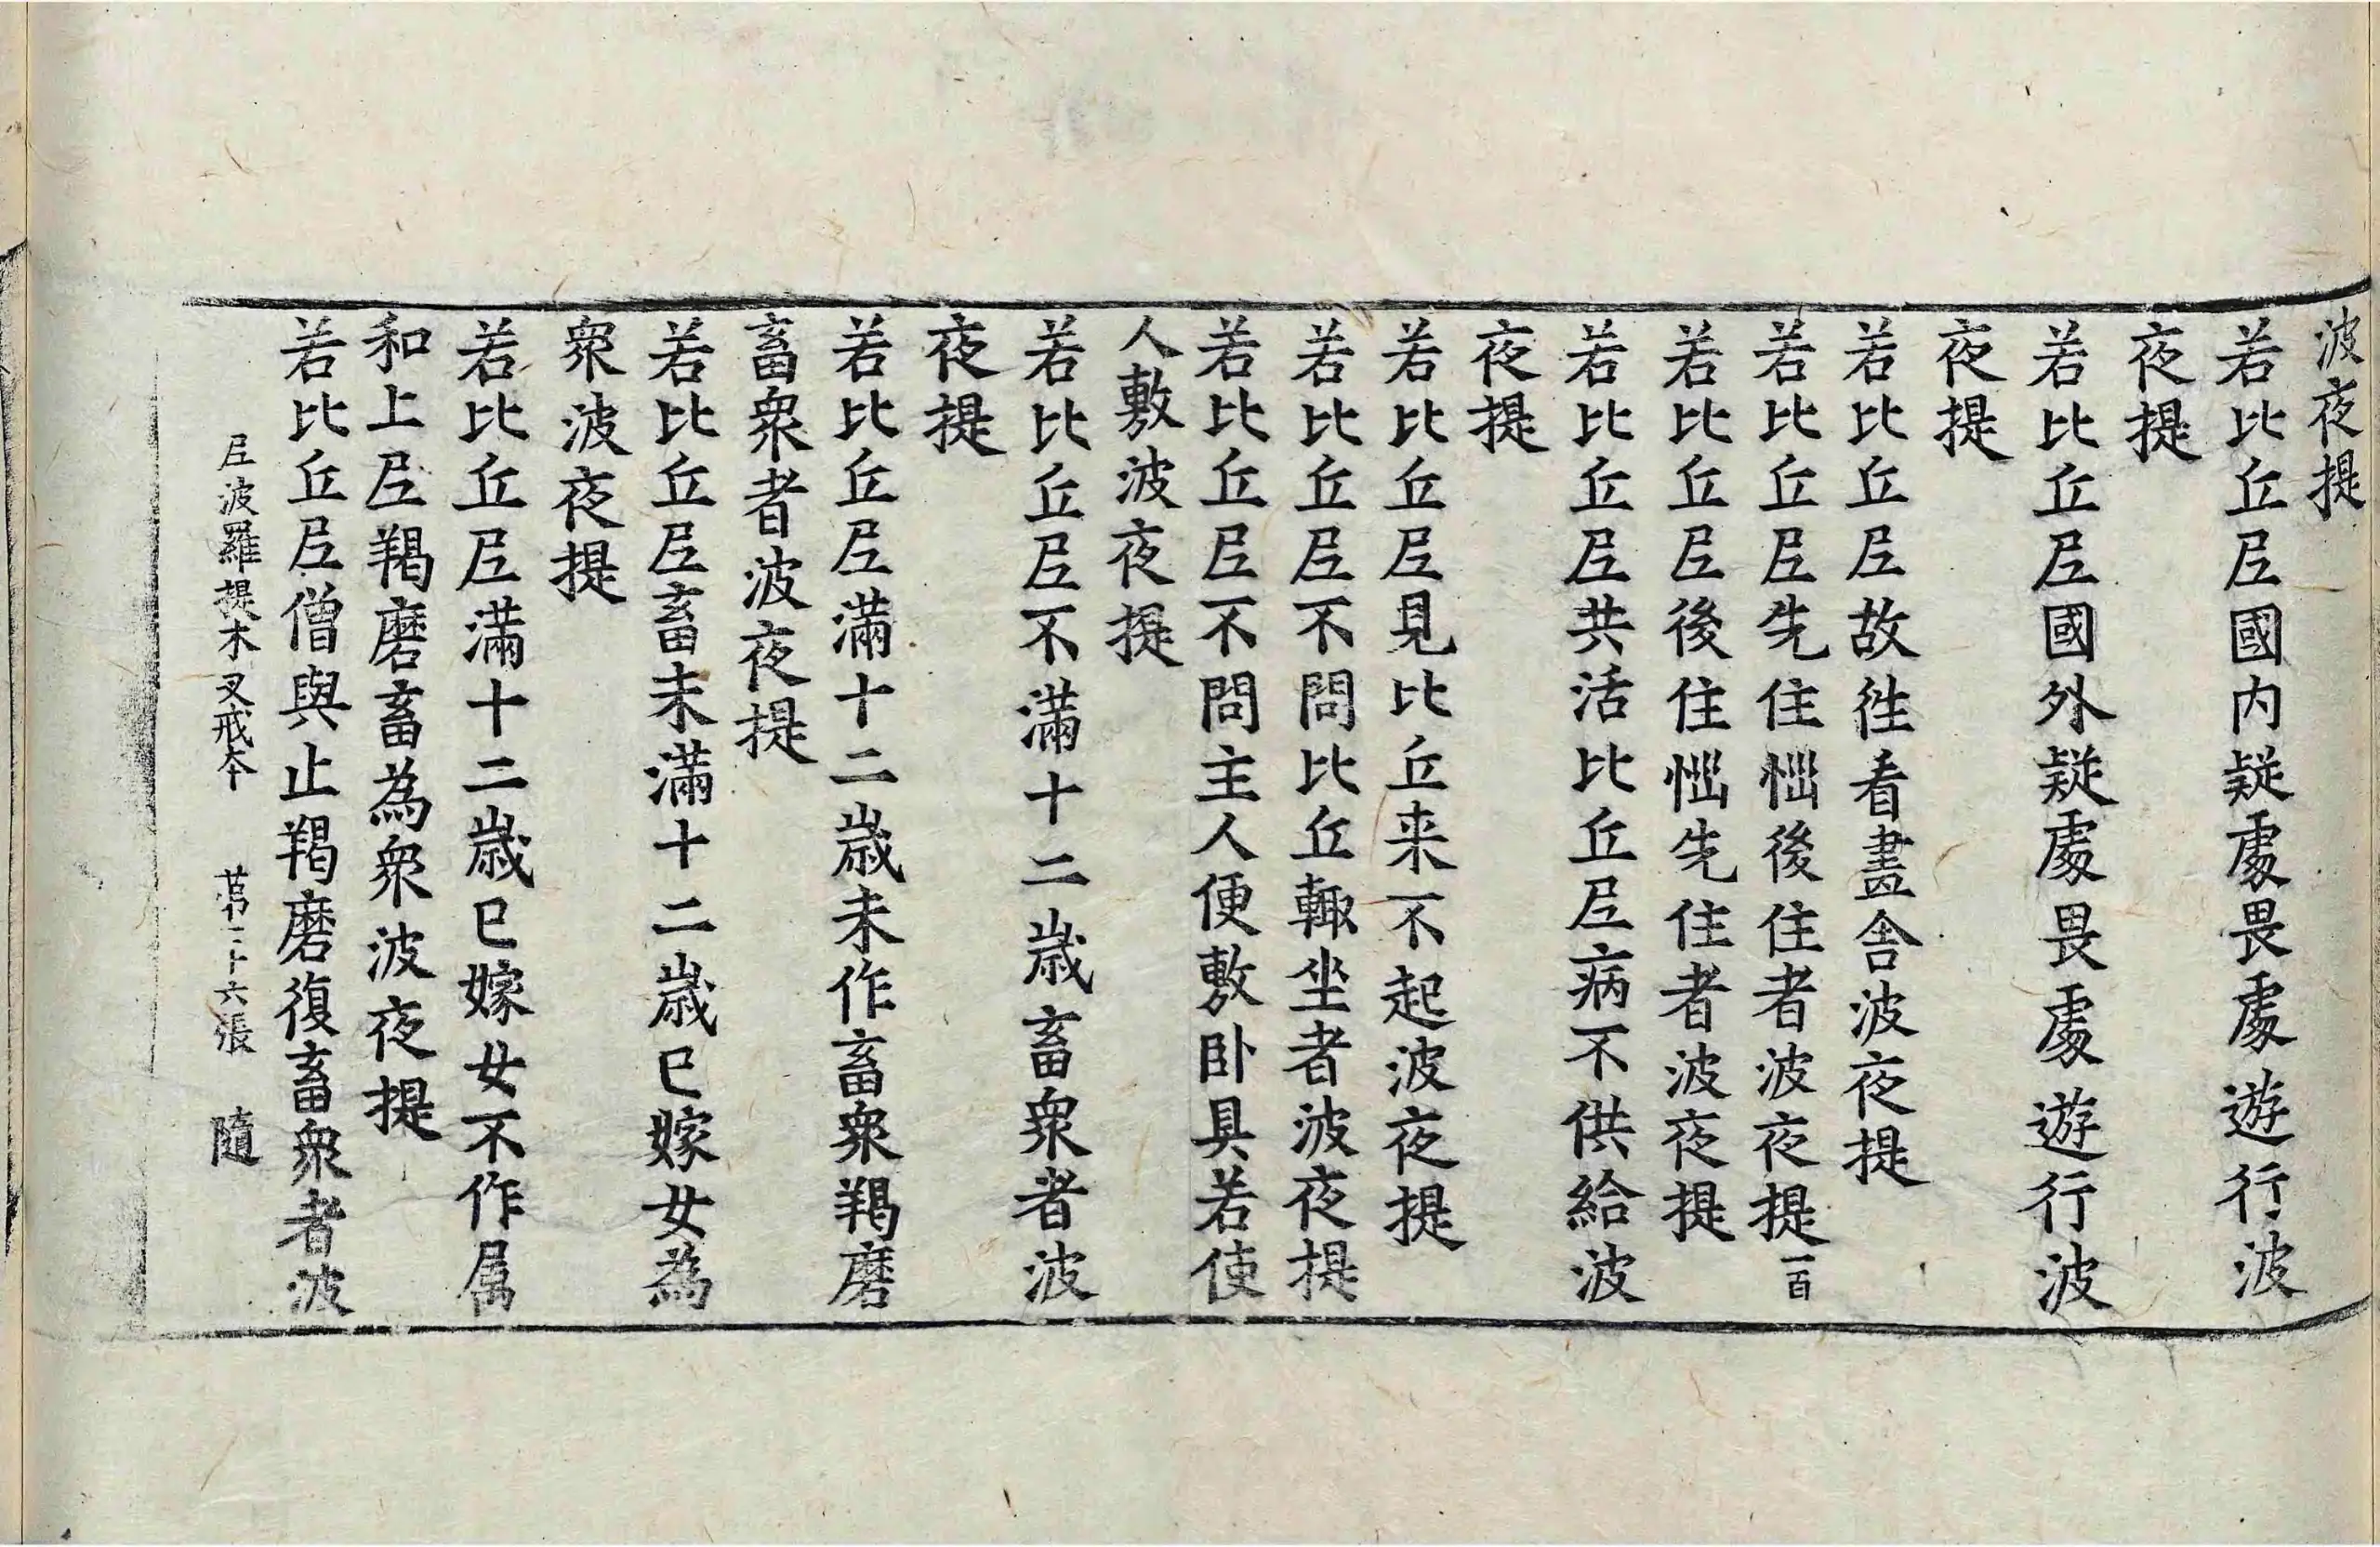 波夜提
若比丘尼國內疑處畏處遊行波
夜提
若比丘尼國外疑處畏處遊行波
夜提
若比丘尼故往看畫舍波夜提
若比丘尼先住惱後住者波夜提一百
若比丘尼後住惱先住者波夜提
若比丘尼共活比丘尼病不供給波
夜提
若比丘尼見比丘来不起波夜提
若比丘尼不問比丘輙坐者波夜提
若比丘尼不問主人便敷卧具若使
人敷波夜提
若比丘尼不滿十二歲畜眾者波
夜提
若比丘尼滿十二歲未作畜眾羯磨
畜眾者波夜提
若比丘尼畜未滿十二歲已嫁女為
眾波夜提
若比丘尼滿十二歲已嫁女不作属
和上尼羯磨畜為眾波夜提
若比丘尼僧與止羯磨復畜眾者波
尼波羅提木叉戒本 第二十六張 隨